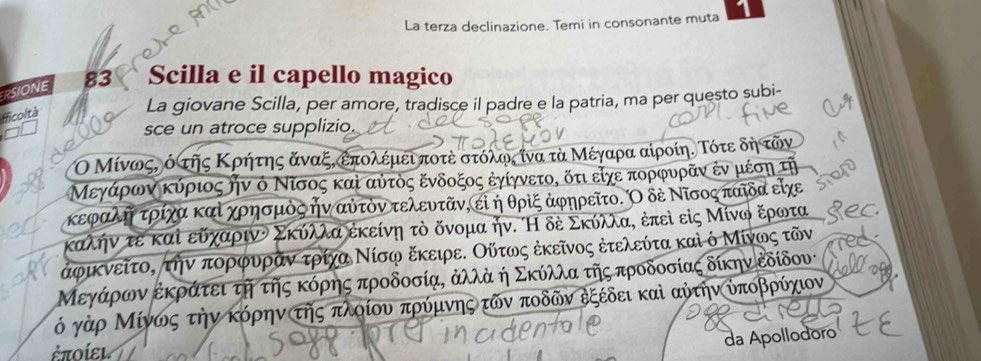 1
La terza declinazione. Temi in consonante muta
ERSIONE 83 Scilla e il capello magico
fficoltà
La giovane Scilla, per amore, tradisce il padre e la patria, ma per questo subi-
sce un atroce supplizio.
compl. fine
πολεμον
Ὁ Μίνως, ὁ τῆς Κρήτης ἄναξ, ἐπολέμει ποτὲ στόλῳ, ἵνα τὰ Μέγαρα αἱροίη. Τότε δὴ τῶν
Μεγάρων κύριος ἦν ὁ Νῖσος καὶ αὐτὸς ἔνδοξος ἐγίγνετο, ὅτι εἶχε πορφυρᾶν ἐν μέσῃ τῇ
κεφαλῇ τρίχα καὶ χρησμὸς ἦν αὐτὸν τελευτᾶν, εἰ ἡ θρὶξ ἀφῃρεῖτο. Ὁ δὲ Νῖσος παῖδα εἶχε
καλήν τε καὶ εὔχαριν· Σκύλλα ἐκείνῃ τὸ ὄνομα ἦν. Ἡ δὲ Σκύλλα, ἐπεὶ εἰς Μίνω ἔρωτα
ἀφικνεῖτο, τὴν πορφυρᾶν τρίχα Νίσῳ ἔκειρε. Οὕτως ἐκεῖνος ἐτελεύτα καὶ ὁ Μίνως τῶν
Μεγάρων ἐκράτει τῇ τῆς κόρης προδοσίᾳ, ἀλλὰ ἡ Σκύλλα τῆς προδοσίας δίκην ἐδίδου·
ὁ γὰρ Μίνως τὴν κόρην τῆς πλοίου πρύμνης τῶν ποδῶν ἐξέδει καὶ αὐτὴν ὑποβρύχιον
ἐποίει.
da Apollodoro